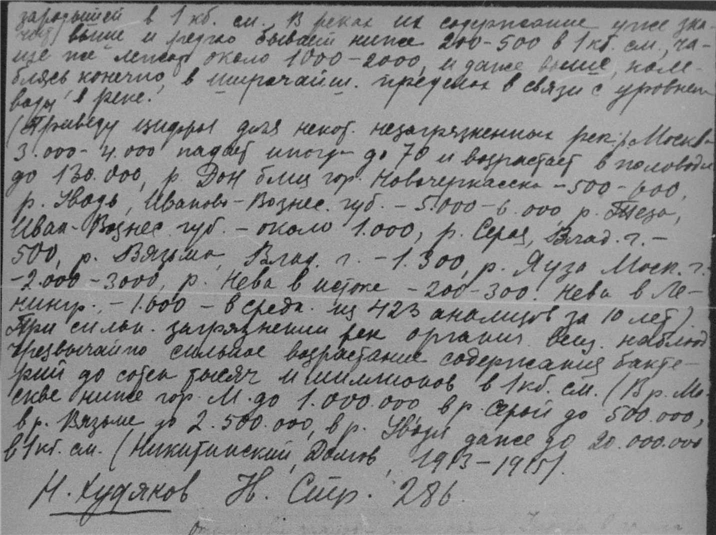 зародышей в 1 кб. см. В реках их содержание уже зна-
чит. выше и редко бывает ниже 200-500 в 1 кб. см., ча-
ще же лежит около 1000-2000, и даже выше, коле-
блясь конечно, в широчайш. пределах в связи с уровнем
воды в реке.
(Приведу цифры для некот. незагрязненных рек: р. Москва
3.000-4.000 падает иногда до 70 и возрастает в половодье
до 130.000, р. Дон близ гор. Новочеркасска - 500-600,
р. Уводь, Иваново-Вознес. губ. - 5.000-6.000, р. Теза,
Иван-Вознес. губ. - около 1.000, р. Серая, Влад. г. -
500, р. Вязьма, Влад. г. - 1.300, р. Яуза Моск. г.
-2.000-3000, р. Нева в истоке - 200-300. Нева в Ле-
нингр. - 1.000 - в средн. из 423 анализов за 10 лет)
При сильн. загрязнении рек органич. вещ. наблюд.
чрезвычайно сильное возрастание содержания бакте-
рий до сотен тысяч и миллионов в 1 кб. см. (В р. Мо-
скве ниже гор. М. до 1.000.000, в р. Серой до 500.000,
в р. Вязьме до 2.500.000, в р. Уводи даже до 20.000.000
в 1 кб. см. (Никитинский, Долгов, 1913-1915).
Н. Худяков Н. Стр. 286.